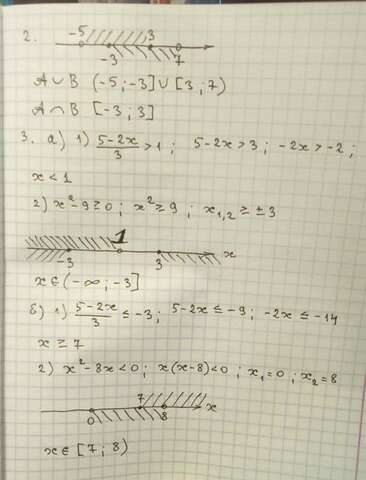 2. -5 3
-3 7
A ∪ B (-5 ; -3] ∪ [3 ; 7)
A ∩ B [-3 ; 3]
3. а) 1) (5-2x)/3 > 1 ; 5-2x > 3 ; -2x > -2 ;
x < 1
2) x² - 9 ≥ 0 ; x² ≥ 9 ; x₁,₂ ≥ ± 3
1
-3 3 x
x ∈ (-∞ ; -3]
б) 1) (5-2x)/3 ≤ -3 ; 5-2x ≤ -9 ; -2x ≤ -14
x ≥ 7
2) x² - 8x < 0 ; x(x-8) < 0 ; x₁ = 0 ; x₂ = 8
7
0 8 x
x ∈ [7 ; 8)